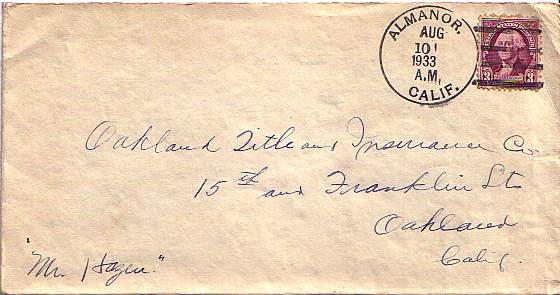 ALMANOR.
AUG
10
1933
A.M.
CALIF.
3 3
Oakland Title and Insurance Co
15th and Franklin Sts
Oakland
Calif.
"Mr. Hazen."